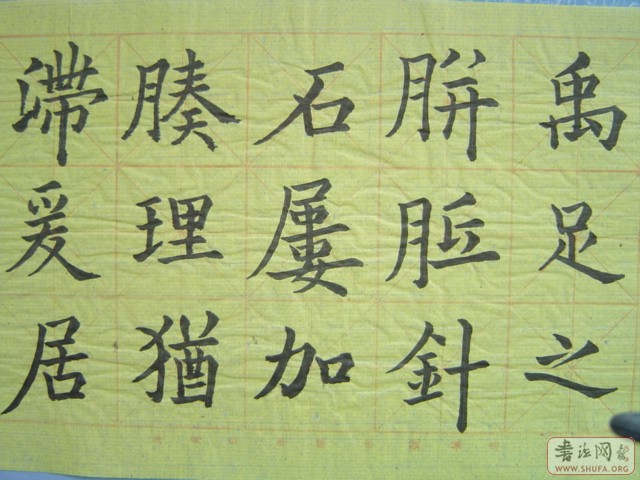 禹足之
胼胝針
石屢加
腠理猶
滯爰居
書法网
WWW.SHUFA.ORG